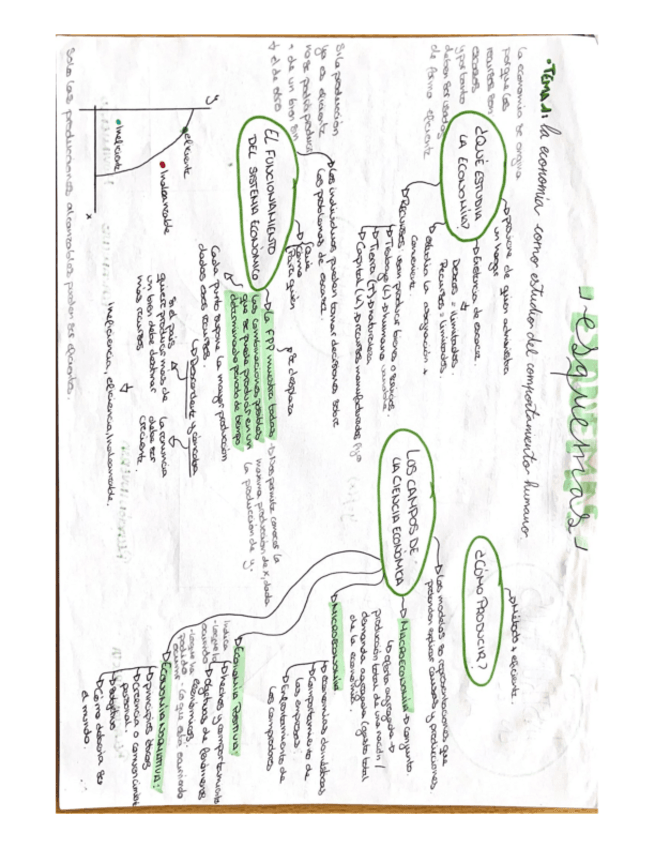 "esquemas"
• TEMA 1: la economía como estudio del comportamiento humano.
la economía se origina
porque los
recursos son
escasos
y por tanto
deben ser usados
de forma eficiente
¿QUÉ ESTUDIA
LA ECONOMÍA?
→ Proviene de quien administra
un hogar
→ Existencia de escasez.
Deseos = ilimitados.
Recursos = limitados.
→ estudia la asignación +
conveniente.
→ RECURSOS: para producir bienes o servicios.
→ Trabajo (L) → humano
→ Tierra (T) → naturaleza
→ Capital (K) → recursos manufacturados
¿CÓMO PRODUCIR?
→ Método + eficiente.
LOS CAMPOS DE
LA CIENCIA ECONÓMICA
→ Los modelos son representaciones que
pretenden explicar causas y predicciones.
→ MACROECONOMÍA → conjunto.
→ oferta agregada →
producción total de una nación /
demanda agregada (gasto total
de la economía)
→ MICROECONOMÍA
→ economías domésticas
→ Comportamiento de
las empresas
→ Comportamiento de
los compradores
→ ECONOMÍA POSITIVA:
→ Hechos y comportamientos
→ Objetivas de fenómenos
económicos.
→ ECONOMÍA NORMATIVA:
→ principios éticos
→ Creencia o convencimiento
personal.
→ Subjetiva
→ Cómo debería ser
el mundo.
EL FUNCIONAMIENTO
DEL SISTEMA ECONÓMICO
→ los individuos puedan tomar decisiones sobre
los problemas de escasez.
→ Qué
Cómo
Para quién
Si la producción
ya es eficiente
no se podrá producir
+ de un bien sin
↓ el de otro
→ La FPP muestra todas
las combinaciones posibles
que se puede producir en un
determinado periodo de tiempo
→ se desplaza
- Nos permite conocer la
máxima producción de x, dada
la producción de y.
Cada punto supone la mayor producción
dados esos recursos.
→ Descendente y cóncava
Si el país
quiere producir más de
un bien debe destinar
más recursos
la renuncia
debe ser
creciente.
Ineficiencia, eficiencia, Inalcanzable.
y
• eficiente
• Inalcanzable
• Ineficiente
x
Solo las producciones alcanzables pueden ser eficientes.